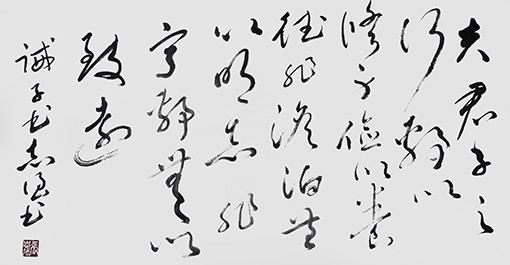 夫君子之
行静以
修身俭以养
德非澹泊無
以明志非
宁静無以
致遠
诫子书志书